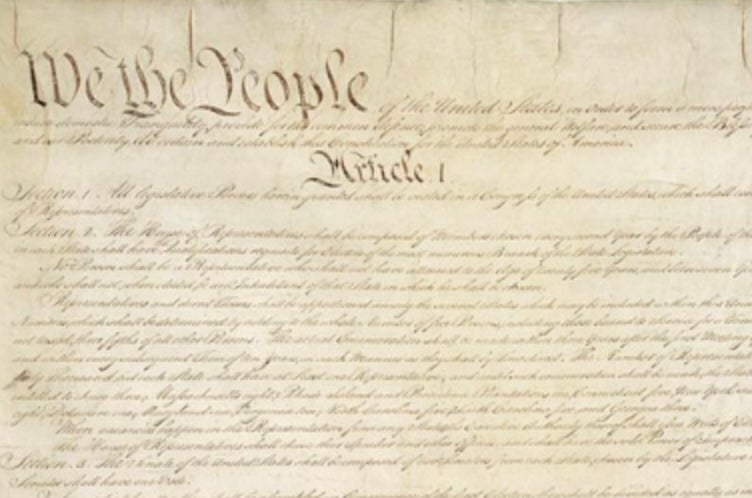 We the People of the United States, in Order to form a more
insure domestic Tranquility, provide for the common defence, promote the general Welfare, and secure the
and our Posterity, do ordain and establish this Constitution for the United States of America.
Article. I.
Section. 1. All legislative Powers herein granted shall be vested in a Congress of the United States, which shall
of Representatives.
Section. 2. The House of Representatives shall be composed of Members chosen every second Year by the People of the
in each State shall have the Qualifications requisite for Electors of the most numerous Branch of the State Legislature.
No Person shall be a Representative who shall not have attained to the Age of twenty five Years, and been seven
and who shall not, when elected, be an Inhabitant of that State in which he shall be chosen.
Representatives and direct Taxes shall be apportioned among the several States which may be included within this
Numbers, which shall be determined by adding to the whole Number of free Persons, including those bound to Service for a
not taxed, three fifths of all other Persons. The actual Enumeration shall be made within three Years after the first Meeting
and within every subsequent Term of ten Years, in such Manner as they shall by Law direct. The Number of
thirty Thousand, but each State shall have at Least one Representative; and until such enumeration shall be made, the
entitled to chuse three, Massachusetts eight, Rhode Island and Providence Plantations one, Connecticut five, New York
eight, Delaware one, Maryland six, Virginia ten, North Carolina five, South Carolina five, and Georgia three.
When vacancies happen in the Representation from any State, the Executive Authority thereof shall issue Writs of
The House of Representatives shall chuse their Speaker and other Officers; and shall have the sole Power of
Section. 3. The Senate of the United States shall be composed of two Senators from each State, chosen by the Legislature
Senator shall have one Vote.